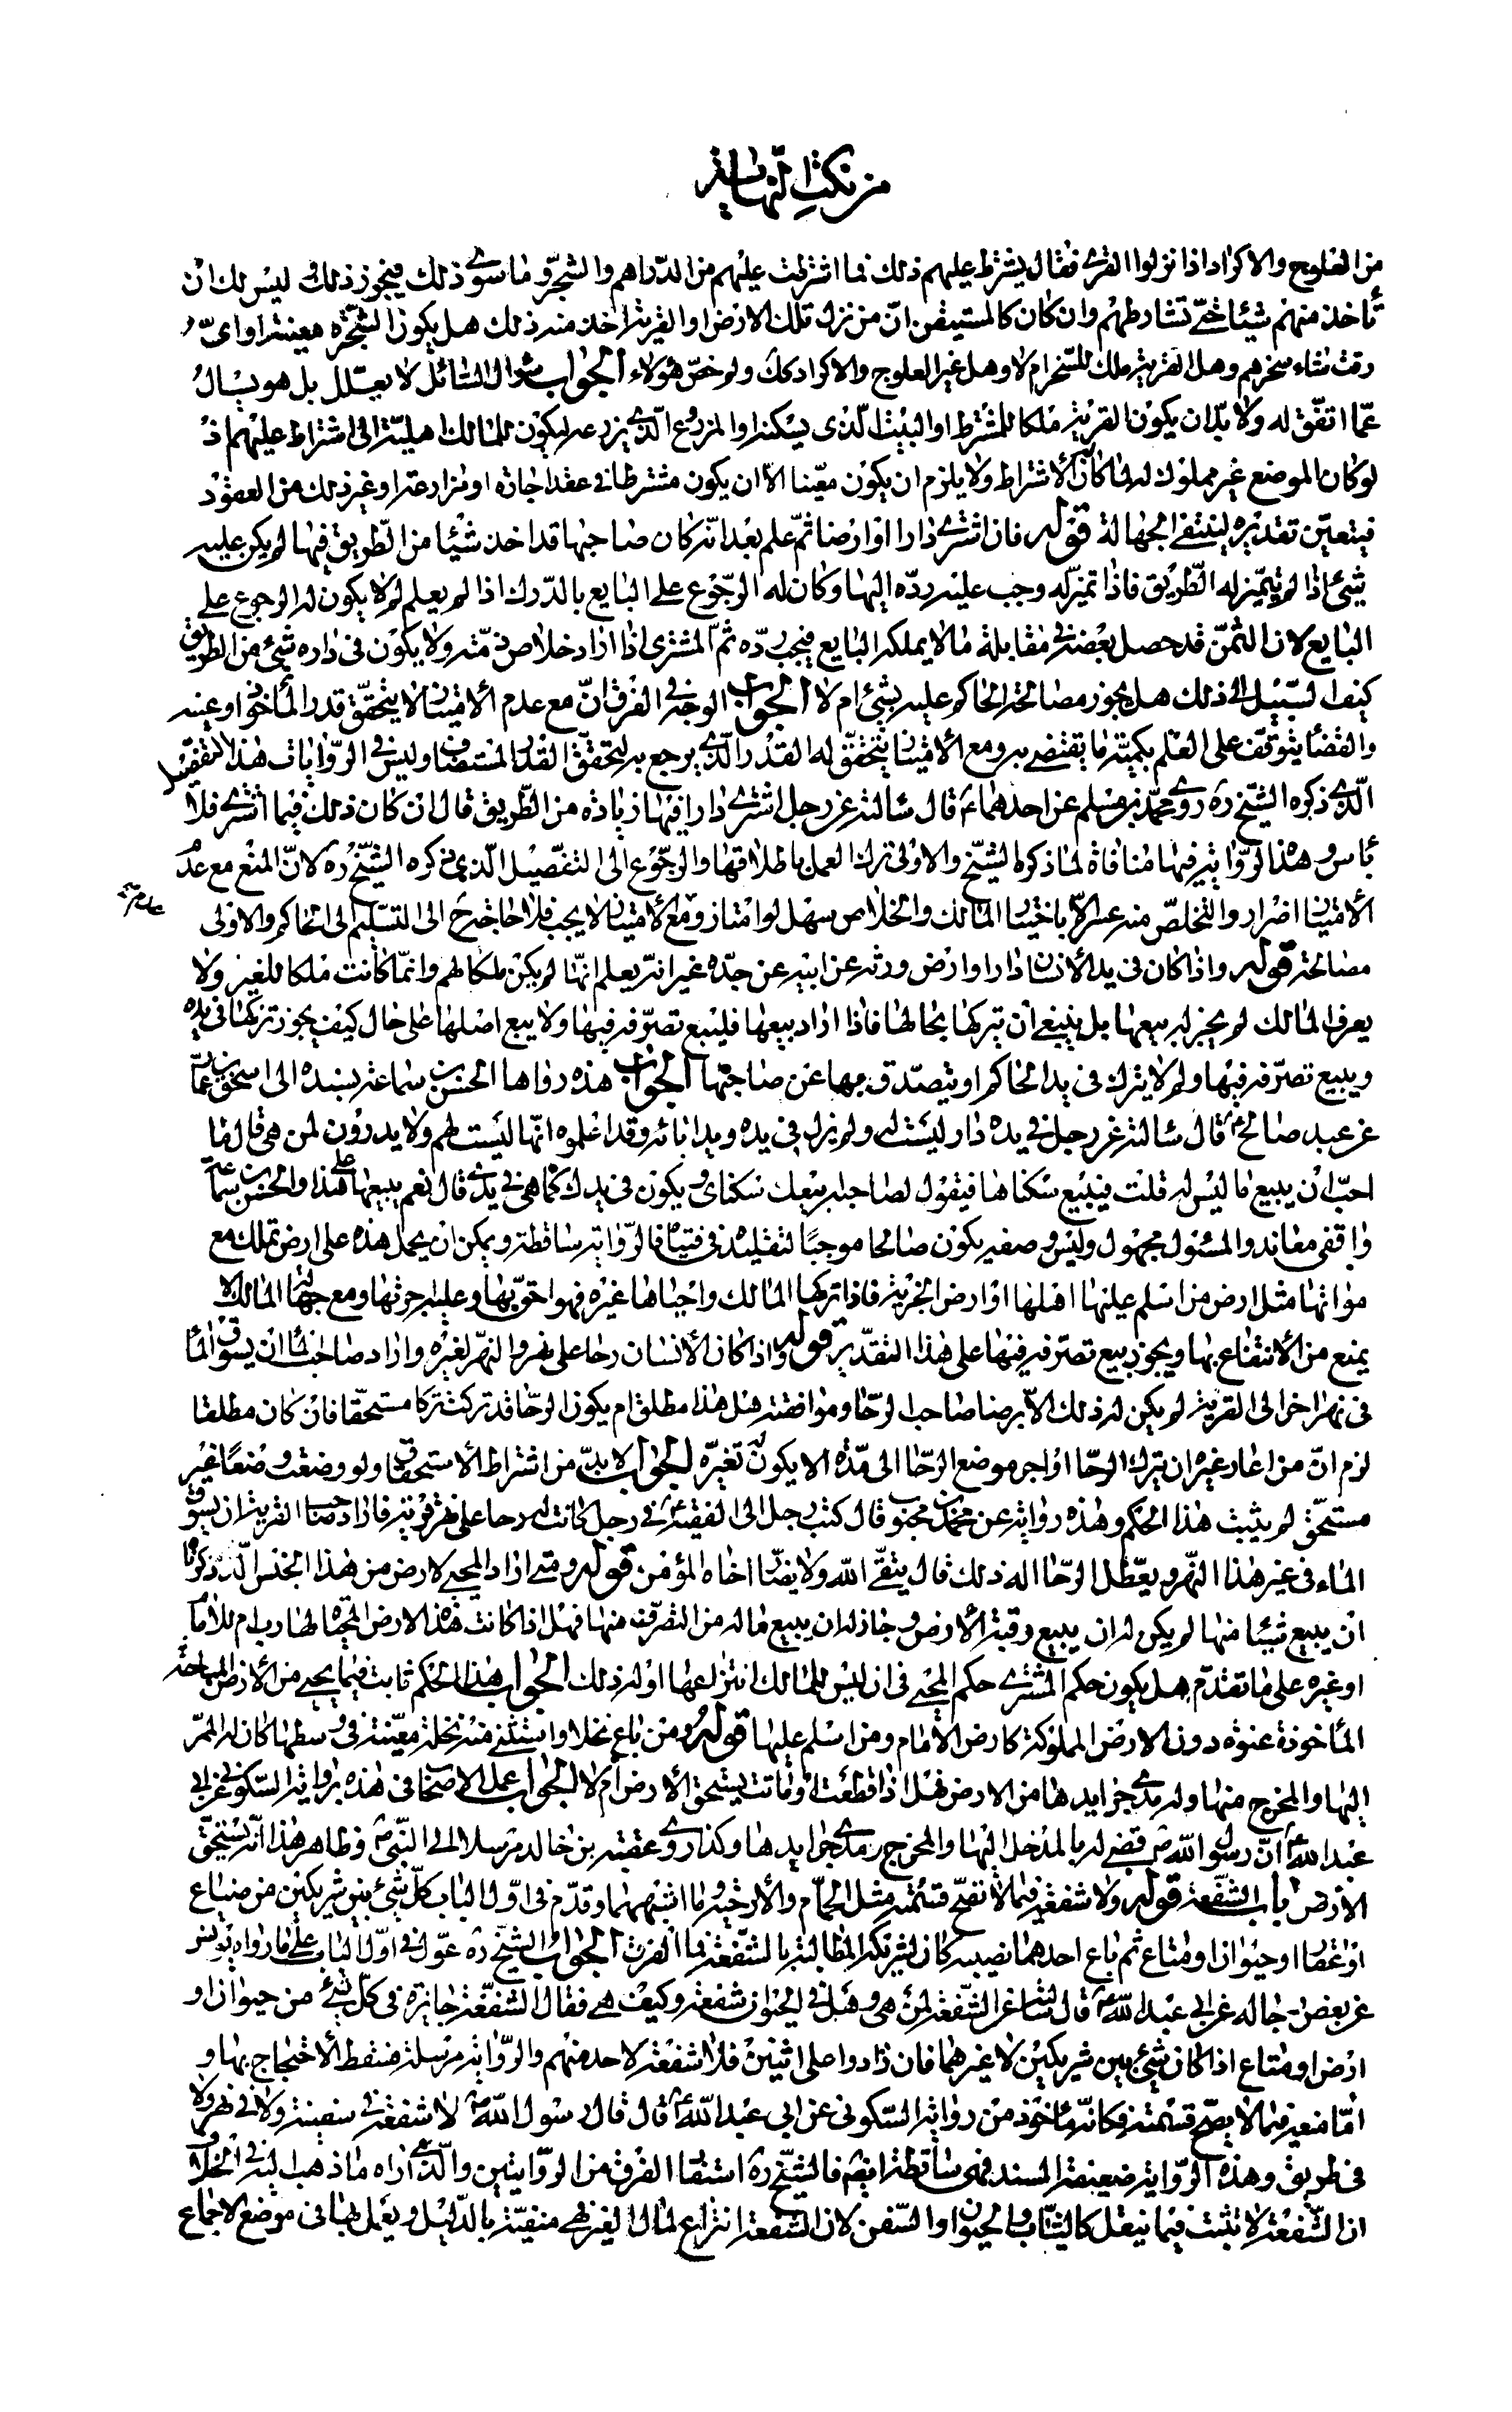 من نكت النهاية
من العلوج والاكراد اذا نزلوا القرى فقال يشترط عليهم ذلك فما اشترطت عليهم من الدراهم والسخرة وما سوى ذلك فيجوز ذلك ليس لك ان
تأخذ منهم شيئا حتى تشارطهم وان كان كالمستيقن ان من نزل تلك الارض او القرية اخذ منه ذلك هل يكون السخرة معينة او اى
وقت شاء سخرهم وهل القرية ملك للسخر ام لا وهل غير العلوج والاكراد كك ولم خص هؤلاء الجواب سؤال السائل لا يعلل بل هو يسال
عما اتفق له ولا بد ان يكون القرية ملكا للمشترط او البيت الذى يسكنه او المزروع الذى يزرعه ليكون للمالك اهلية الاشتراط عليهم اذ
لو كان الموضع غير مملوك له لما كان الاشتراط ولا يلزم ان يكون معينا الا ان يكون مشترطا فى عقد اجازه او مزارعة او غير ذلك من العقود
فيتعين تقديره لينتفى الجهالة قوله فان اشترى دارا او ارضا ثم علم بعد انه كان صاحبها قد اخذ شيئا من الطريق فيها لم يكن عليه
شئ اذا لم يتميز له الطريق فاذا تميز له وجب عليه رده اليها وكان له الرجوع على البايع بالدرك اذا لم يعلم لم لا يكون له الرجوع على
البايع لان الثمن قد حصل بعضه فى مقابلة ما لا يملكه البايع فيجب رده ثم المشترى اذا اراد خلاص ذمته ولا يكون فى داره شئ من الطريق
كيف السبيل الى ذلك هل يجوز مصالحة الحاكم عليه بشئ ام لا الجواب الوجه فى الفرق ان مع عدم الامتياز لا يتحقق قدر المأخوذ او عينه
والقضاء يتوقف على العلم بكمية ما يقتضى به ومع الامتياز يتحقق له القدر الذى يرجع به ليتحقق القدر المستضاف وليس فى الروايات هذا التفصيل
الذى ذكره الشيخ ره روى محمد بن مسلم عن احدهما ع قال سالته عن رجل اشترى دارا فيها زيادة من الطريق قال ان كان ذلك فيما اشترى فلا
بأس وهذه الرواية فيها منافاة لما ذكره الشيخ والاولى ترك العمل باطلاقها والرجوع الى التفصيل الذى ذكره الشيخ ره لان المنع مع عدم
الامتياز اضرار والتخلص منه عسر الا باختيار المالك والخلاص سهل لو امتاز ومع الامتياز لا يجب فلا حاجة ح الى التسليم الى الحاكم والاولى
مصالحته قوله واذا كان فى يد الانسان دار او ارض ورثه عن ابيه عن جده غير انه يعلم انها لم يكن ملكا لهم وانما كانت ملكا للغير ولا
يعرف المالك لم يجز له بيعها بل ينبغى ان يتركها بحالها فاذا اراد بيعها فليبع تصرفه فيها ولا يبع اصلها على حال كيف يجوز تركها فى يده
ويبيع تصرفه فيها ولم لا يترك فى يد الحاكم او يتصدق بها عن صاحبها الجواب هذه رواها الحسن بن سماعة بسنده الى اسحق بن عمار
عن عبد صالح ع قال سالته عن رجل فى يده دار ليست له ولم يزل فى يده ويد ابائه وقد اعلموه انها ليست لهم ولا يدرون لمن هى قال ما
احب ان يبيع ما ليس له قلت فيبيع سكناها فيقول لصاحبه ابيعك سكناى ويكون فى يدك كما هى فى يدى قال نعم يبيعها على هذا والحسن بن سماعة
واقفى معاند والمسئول مجهول وليس وصفه بكون صالحا موجبا لتقليده فى فتياه فالرواية ساقطة ويمكن ان يحمل هذه على ارض تملك مع
مواتها مثل ارض من اسلم عليها اهلها او ارض الجزية فاذا تركها المالك واحياها غيره فهو احق بها وعليه حرثها ومع جهالة المالك لا
يمنع من الانتفاع بها ويجوز بيع تصرفه فيها على هذا التقدير قوله واذا كان الانسان رحا على نهر والنهر لغيره واراد صاحب الماء ان يسوق الماء
فى نهر اخر الى القرية لم يكن له ذلك الا برضا صاحب الرحا وموافقته هل هذا مطلق ام يكون الرحا قد تركت تركا مستحقا فان كان مطلقا
لزم ان من اعار غيره ان يترك الرحا او اجر موضع الرحا الى مدة الا يكون له تغيره الجواب لا بد من اشتراط الاستحقاق ولو وضعت وضعا غير
مستحق لم يثبت هذا الحكم وهذه رواية عن محمد بن محبوب قال كتب رجل الى الفقيه ع فى رجل كانت له رحا على نهر قرية فاراد صاحب القرية ان يسوق
الماء فى غير هذا النهر ويعطل الرحا اله ذلك قال يتقى الله ولا يضار اخاه المؤمن قوله ومتى اراد المحيى لارض من هذا الجنس الذى ذكرناه
ان يبيع شيئا منها لم يكن له ان يبيع رقبة الارض وجاز له ان يبيع ماله من التصرف منها فهل اذا كانت هذه الارض المحياة لها رب ام للامام
او غيره على ما تقدم هل يكون حكم المشترى حكم المحيى فى ان ليس للمالك انتزاعها او له ذلك الجواب هذا الحكم ثابت فيما يحيى من الارض المباحة
المأخوذة عنوة دون الارض المملوكة كارض الامام ومن اسلم عليها قوله ومن باع نخلا واستثنى منه نخلة معينة فى وسطها كان له الممر
اليها والمخرج منها وله مدى جرايدها من الارض فهل اذا قطعت او ماتت يستحق الارض ام لا الجواب عمل الاصحاب فى هذه برواية السكونى عن ابى
عبد الله ع ان رسول الله ص قضى له بالمدخل اليها والمخرج ومدى جرايدها وكذا روى عقبة بن خالد مرسلا الى النبى ص وظاهر هذا انه يستحق
الارض باب الشفعة قوله ولا شفعة فيما لا تصح قسمته مثل الحمام والارحية وما اشبههما وقدم فى اول الباب كل شئ بين شريكين من ضياع
او عقار او حيوان او متاع ثم باع احدهما نصيبه كان لشريكه المطالبة بالشفعة فما الفرق الجواب الشيخ ره عول فى اول الباب على ما رواه يونس
عن بعض رجاله عن ابى عبد الله ع قال سالته عن الشفعة لمن هى وهل فى الحيوان شفعة وكيف هى فقال الشفعة جائزة فى كل شئ من حيوان او
ارض او متاع اذا كان شئ بين شريكين لا غيرهما فان زادوا على اثنين فلا شفعة لاحد منهم والرواية مرسلة فسقط الاحتجاج بها و
اما منعه فيما لا يصح قسمته فكانه ماخوذ من رواية السكونى عن ابى عبد الله ع قال قال رسول الله ص لا شفعة فى سفينة ولا فى نهر ولا
فى طريق وهذه الرواية ضعيفة السند فهى ساقطة ايضا فالشيخ ره استفاد الفرق من الروايتين والذى اراه ما ذهب اليه فى الخلاف
ان الشفعة لا تثبت فيما ينقل كالثياب والحيوان او السفن لان الشفعة انتزاع لمال الغير فهى منفية بالدليل ويعمل بها فى موضع الاجماع